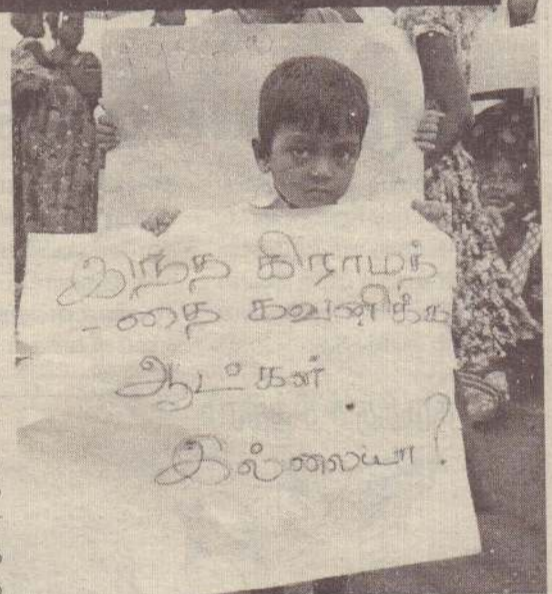 இந்த கிராமத்
-தை கவனிக்க
ஆட்கள்
இல்லையா?